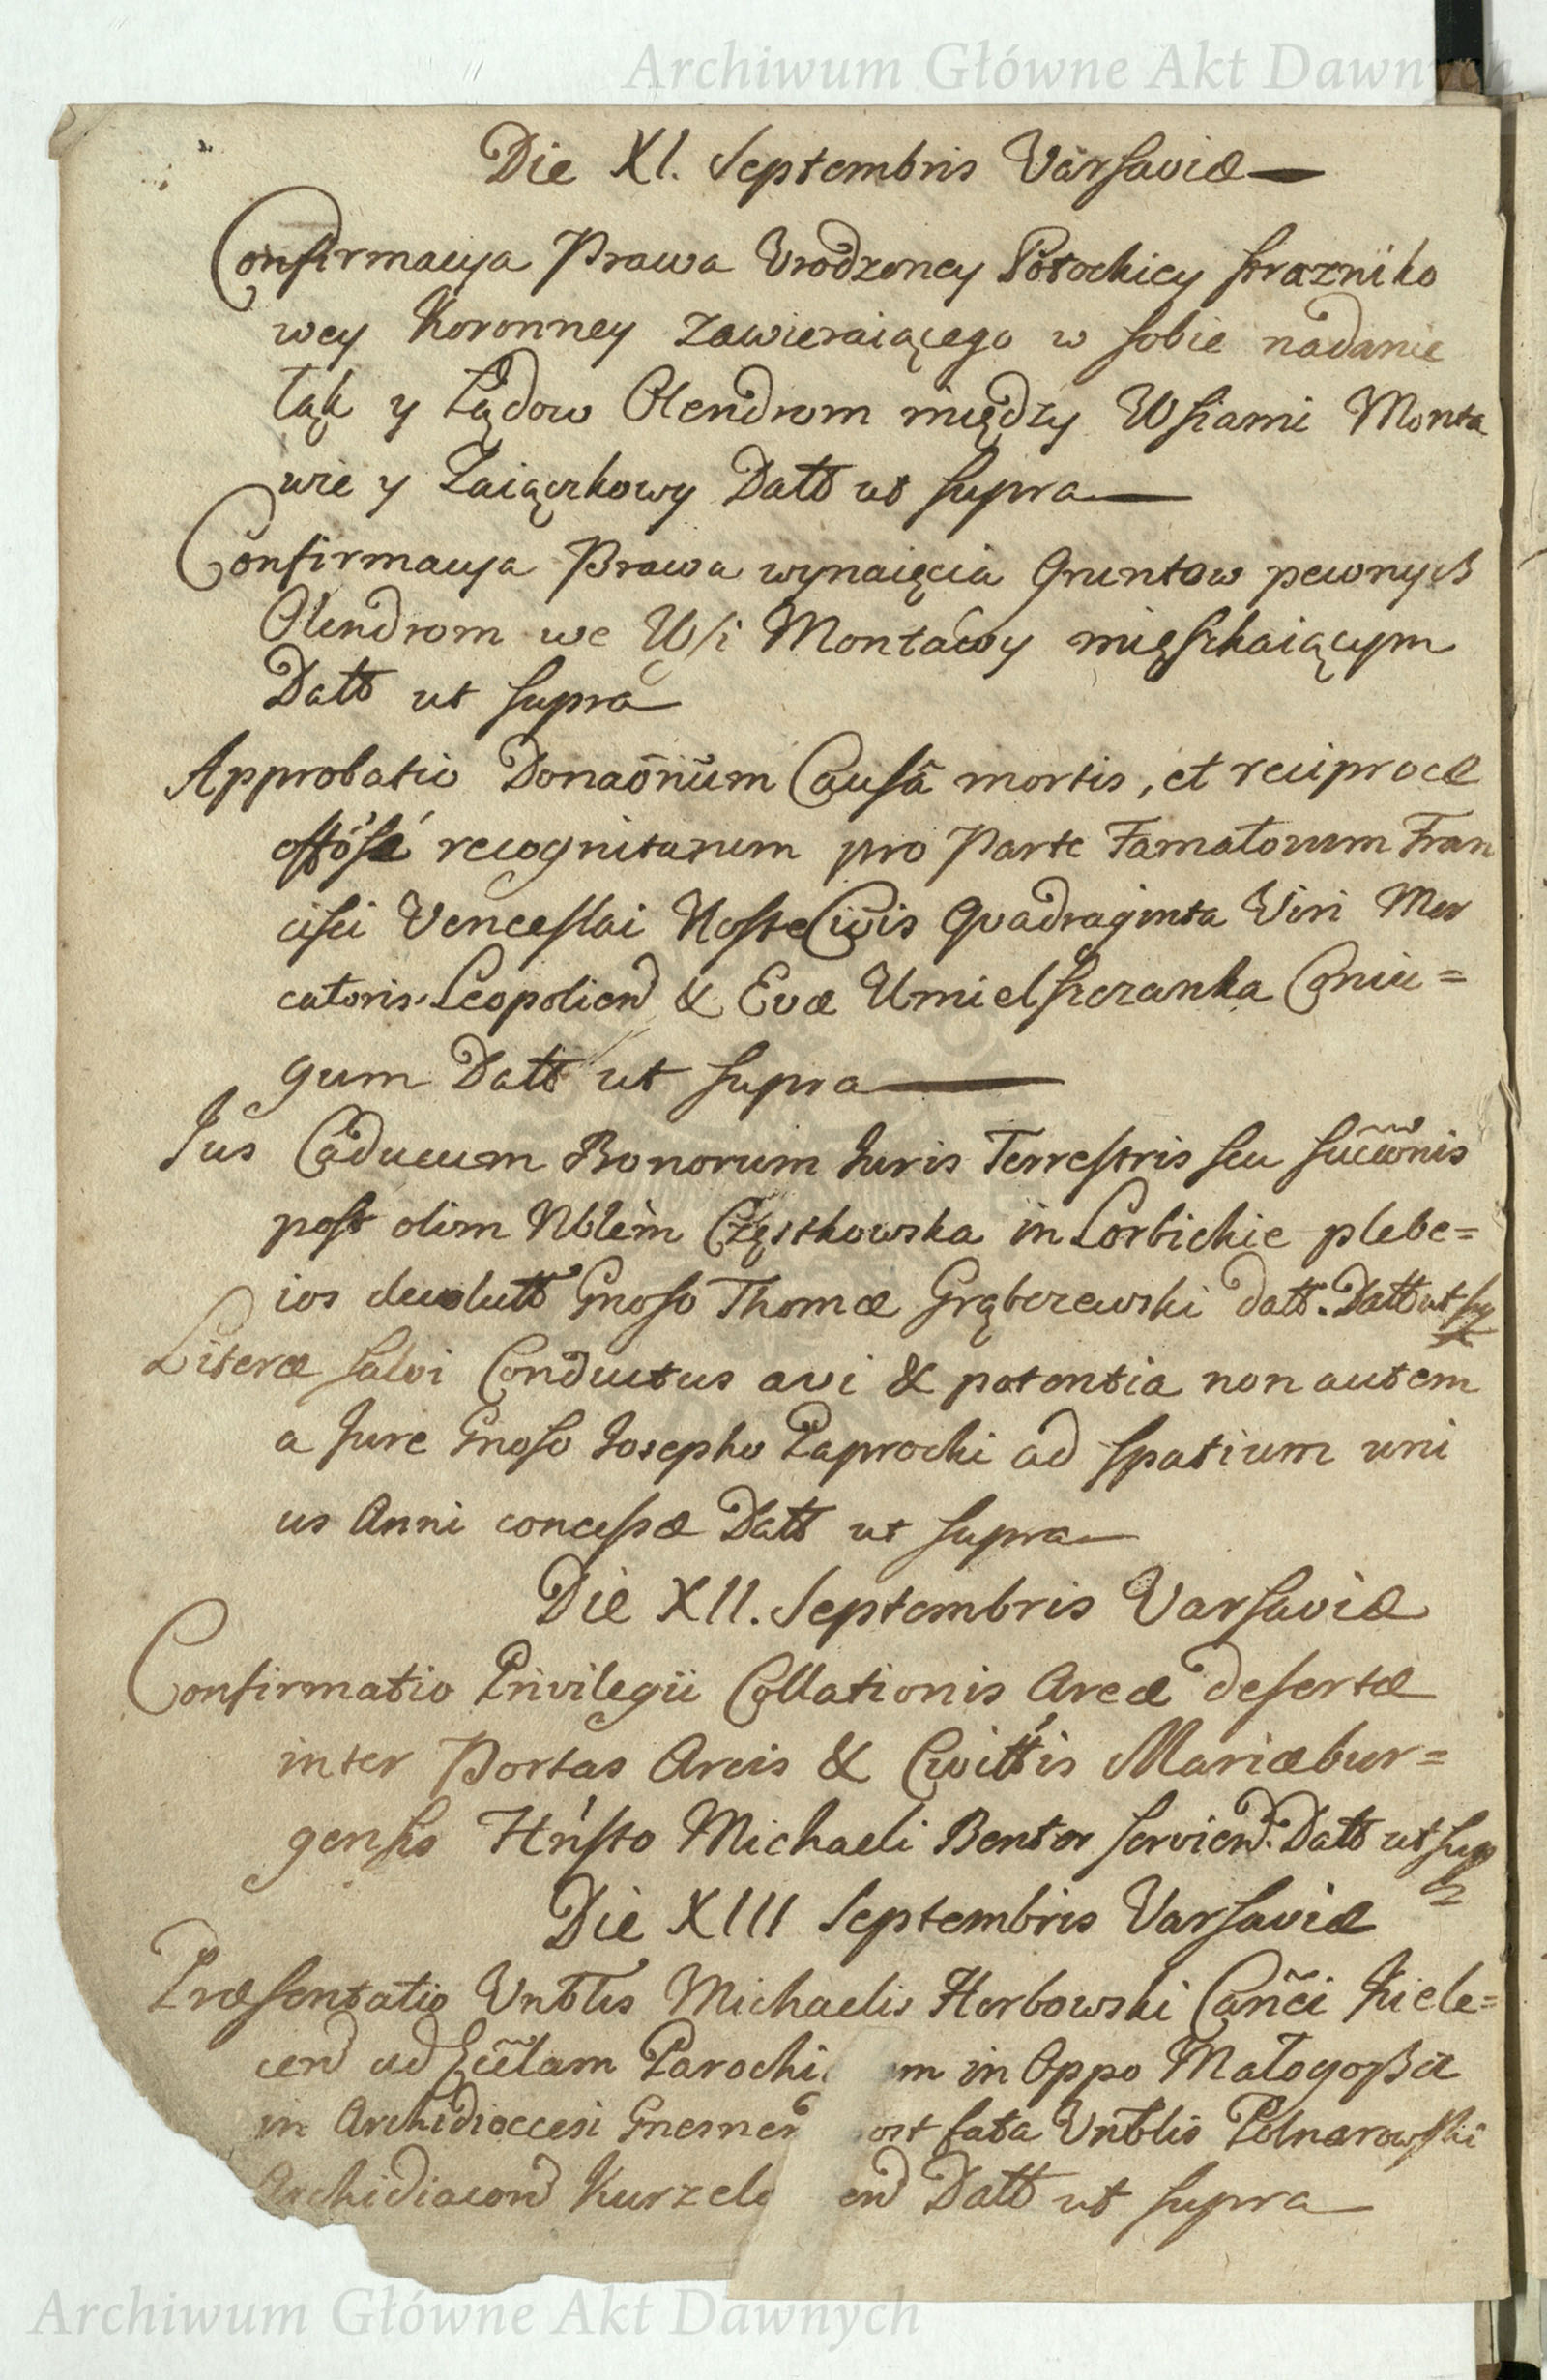 Archiwum Główne Akt Dawnych
Die XI. Septembris Varsaviæ
Confirmacya Prawa Urodzoney Potockiey strazniko
wey Koronney zawieraiącego w sobie nadanie
łąk y Lądow Olendrom między Wsiami Monta
wie y Zaiączkowy Datt ut supra
Confirmacya Prawa wynaięcia Gruntow pewnych
Olendrom we Wsi Montawy mięszkaiącym
Datt ut supra
Approbatio Donaōnūm Causâ mortis, et reciprocæ
recognitarum pro Parte Famatorum Fran
cisci Venceslai Hoste Civis Quadraginta Viri Mer
catoris Leopolien & Evæ Umielszczanka Coniu=
gum Datt ut supra
Jus Caducum Bonorum Juris Terrestris seu succōnis
post olim Nblem Częstkowska in Lorbickie plebe=
ios devolutt Gnoso Thomæ Grąbczewski datt. Datt ut sup
Literæ salvi Conductus a vi & potentia non autem
a Jure Gnoso Josepho Paprocki ad spatium uni
us Anni concessæ Datt ut supra
Die XII. Septembris Varsaviæ
Confirmatio Privilegii Collationis Areæ desertæ
inter Portas Arcis & Civittis Mariæbur=
gensis Hnsto Michaeli Bentor servien. Datt ut sup
Die XIII Septembris Varsaviæ
Præsentatio Vnblis Michaelis Herbowski Cañci Kiele=
cen ad Ecclam Parochi m in Oppo Małogoszcz
in Archidiœcesi Gnesnen ost fata Vnblis Polnarowski
Archidiacon Kurzelo en Datt ut supra
Archiwum Główne Akt Dawnych